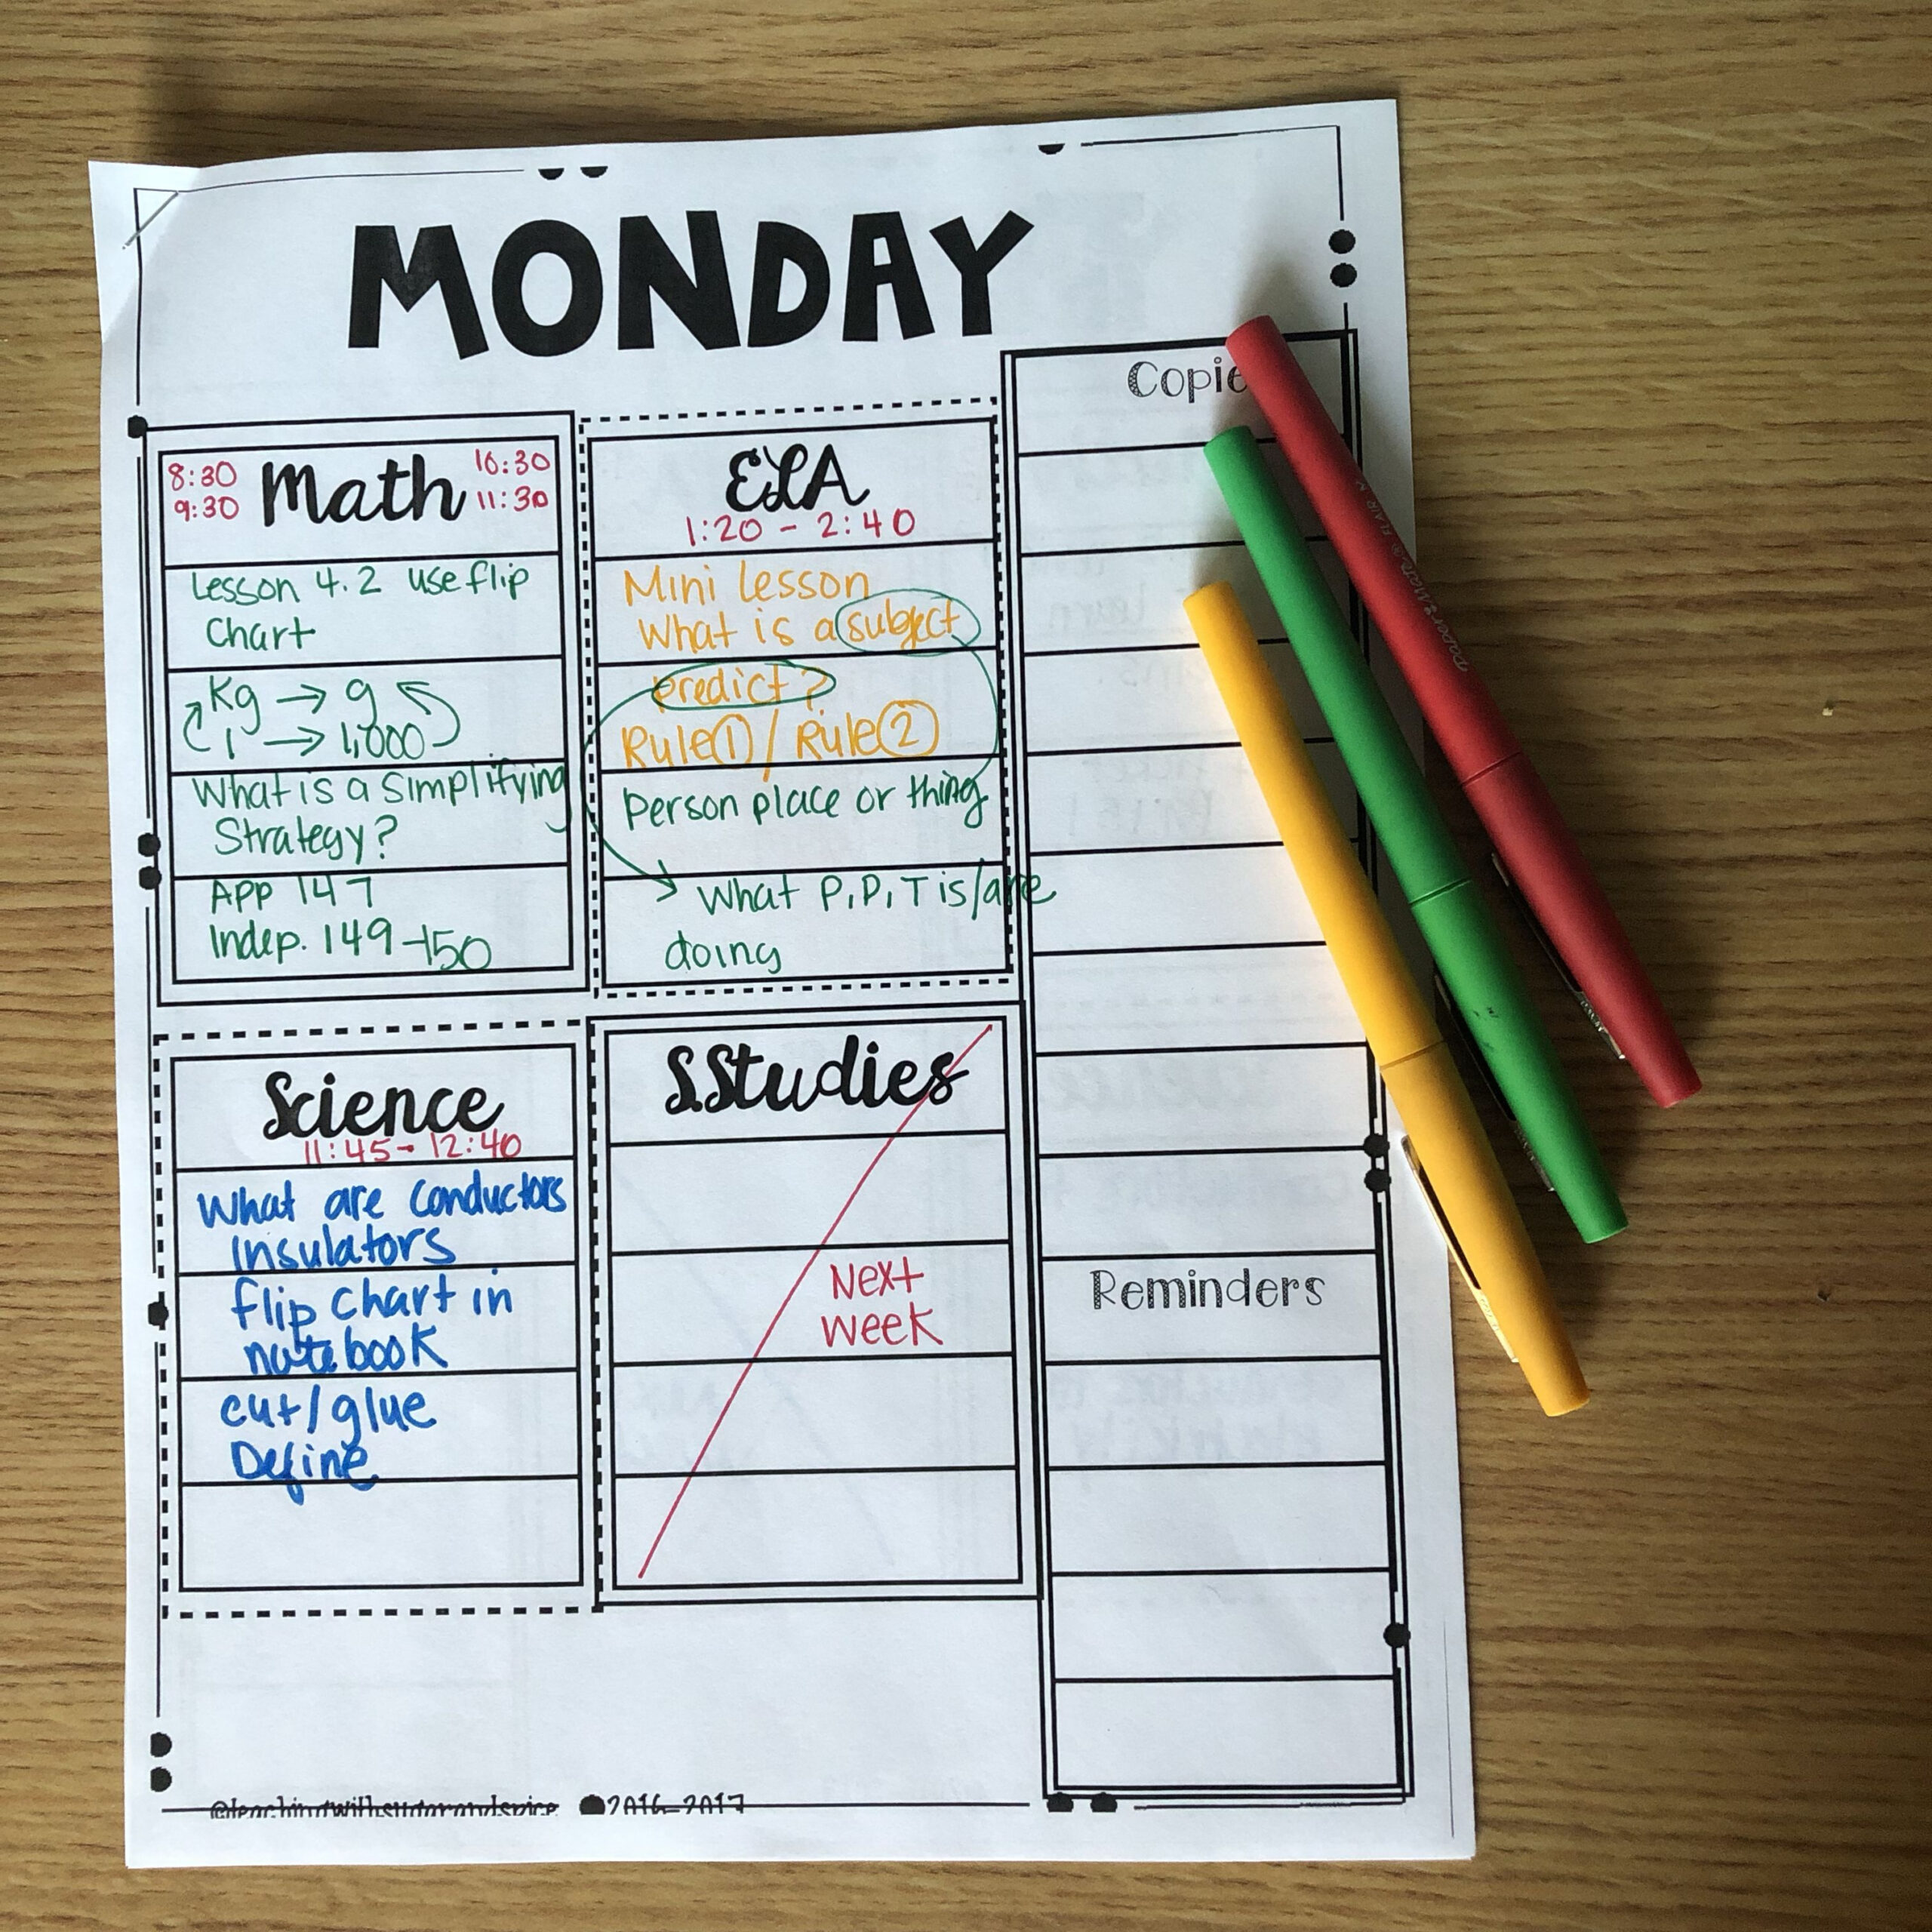 MONDAY
8:30
9:30
Math
10:30
11:30
Lesson 4.2 use flip
Chart
Kg → g
1 → 1,000
What is a Simplifying
Strategy?
App 147
Indep. 149-150
ELA
1:20 - 2:40
Mini lesson
What is a subject
predict?
Rule ① / Rule ②
person place or thing
→ What P,P,T is/are
doing
Science
11:45 - 12:40
What are conductors
Insulators
flip chart in
notebook
cut/glue
Define
S.Studies
Next
week
Copie
Reminders
@teachingwithsugarandspice 2016-2017
Paper Mate FLAIR M